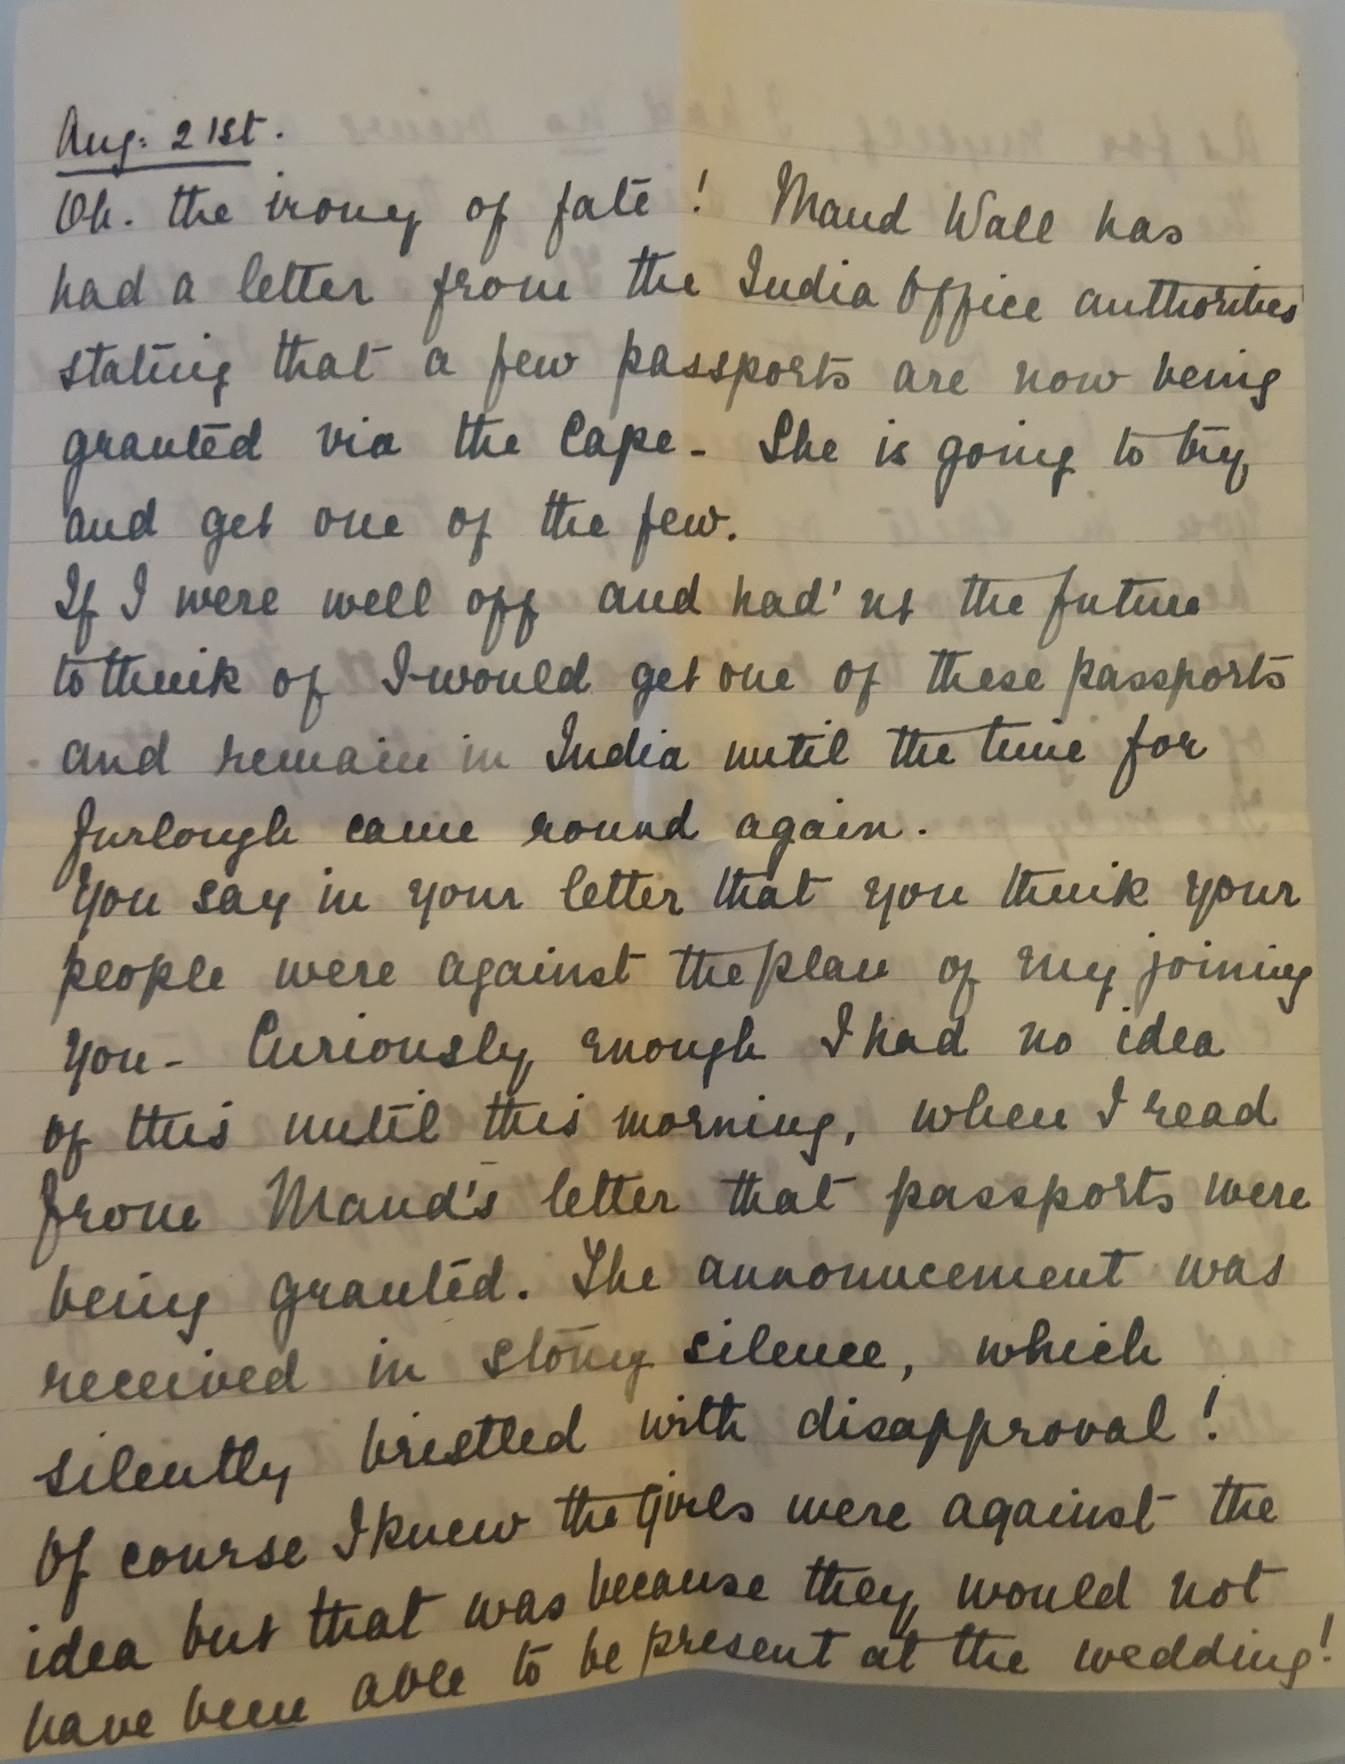 Aug: 21st.
Oh. the irony of fate! Maud Wall has
had a letter from the India Office authorities
stating that a few passports are now being
granted via the Cape - She is going to try
and get one of the few.
If I were well off and had'nt the future
to think of I would get one of these passports
and remain in India until the time for
furlough came round again.
You say in your letter that you think your
people were against the plan of my joining
you - Curiously enough I had no idea
of this until this morning, when I read
from Maud's letter that passports were
being granted. The announcement was
received in stony silence, which
silently bristled with disapproval!
Of course I knew the girls were against the
idea but that was because they would not
have been able to be present at the wedding!